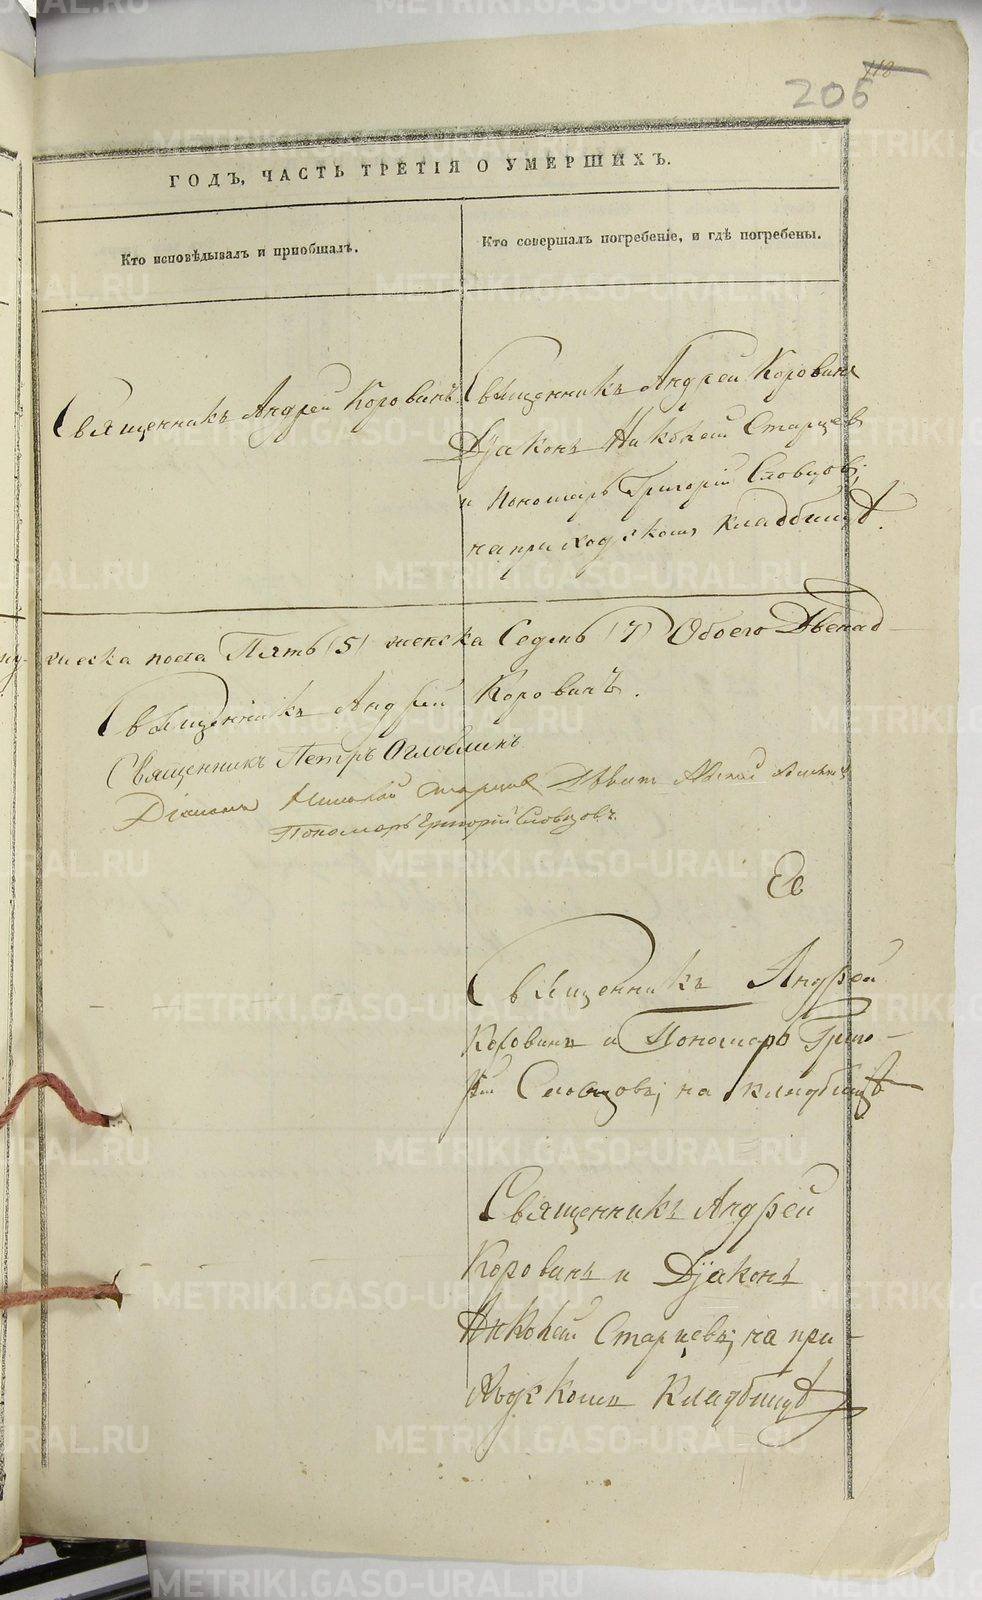 118
206
ГОДЪ, ЧАСТЬ ТРЕТІЯ О УМЕРШИХЪ.
Кто исповѣдывалъ и пріобщалъ.
Кто совершалъ погребеніе, и гдѣ погребены.
Священникъ Андрей Коровинъ
Священникъ Андрей Коровинъ
Діаконъ Николай Старцев
и Пономарь Григорій Словцов;
на приходскомъ кладбищѣ.
мужеска пола Пять (5) женска Седмь (7) Обоего Двенад-
Священникъ Андрей Коровинъ.
Священникъ Петръ Оглоблинъ
Діаконъ Николай Старцев
Пономарь Григорій Словцовъ.
Священникъ Андрей
Коровинъ и Пономарь Григо-
рій Словцовъ; на кладбищѣ
Священникъ Андрей
Коровинъ и Діаконъ
Николай Старцевъ; на при-
ходскомъ кладбищѣ
METRIKI.GASO-URAL.RU